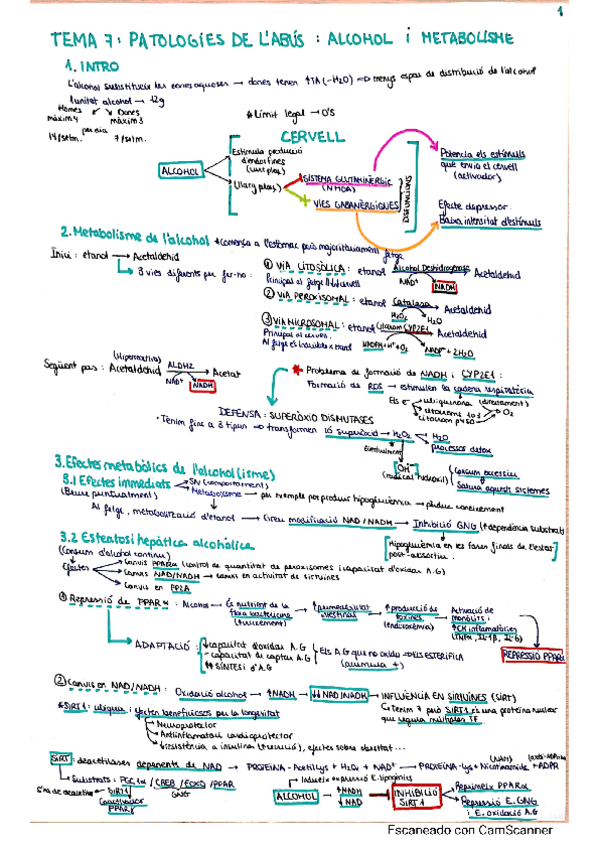 1
TEMA 7: PATOLOGIES DE L'ABÚS: ALCOHOL i METABOLISME
1. INTRO
L'alcohol substitueix les zones aquoses → dones tenen ↑TA (-H2O) ⇒ menys espai de distribució de l'alcohol
1 unitat alcohol → 12g
Homes Dones
màxim 4 màxim 3
per dia
14/setm. 7/setm.
* Límit legal → 0'5
CERVELL
ALCOHOL
Estimula producció
d'endorfines
(curt plaç)
(llarg plaç)
SISTEMA GLUTAMINÈRGIC
(NMDA)
VIES GABANÈRGIQUES
DISFUNCIONS
Potencia els estímuls
que envia el cervell
(activador)
Efecte depressor.
Baixa intensitat d'estímuls
2. Metabolisme de l'alcohol * Comença a l'estómac però majoritàriament fetge
Inici: etanol → Acetaldehid
3 vies diferents per fer-ho:
① VIA CITOSÒLICA: etanol Alcohol Deshidrogenasa Acetaldehid
Principal al fetge
NAD+ NADH
② VIA PEROXISOMAL: etanol Catalasa Acetaldehid
H2O2 H2O
③ VIA MICROSOMAL: etanol Citocrom CYP2E1 Acetaldehid
Principal al cervell.
NADPH+H+ +O2 NADP+ + 2H2O
Següent pas: Acetaldehid ALDH2 Acetat
(Hiperreactiva)
NAD+ NADH
* Problema de formació de NADH i CYP2E1:
Formació de ROS → estimulen la cadena respiratòria
Els e- ubiquinona (directament)
citocroms b i c
citocrom p450
O2
DEFENSA: SUPERÒXID DISMUTASES
· Tenim fins a 3 tipus ⇒ transformen ió superòxid → H2O2 H2O
processos detox
Eventualment
OH·
(radical hidroxil)
Consum excessiu
Satura aquests sistemes
3. Efectes metabòlics de l'alcohol (isme)
3.1 Efectes immediats SN (comportament)
(Beure puntualment) Metabolisme → per exemple pot produir hipoglucèmia →
Al fetge, metabolització d'etanol → Greu modificació NAD/NADH → Inhibició GNG (↑dependència substrats
Hipoglucèmia en les fases finals de l'estat
post-absortiu.
3.2 Esteatosi hepàtica alcohòlica
(Consum d'alcohol continu)
Efectes
Canvis PPARα (control de quantitat de peroxisomes i capacitat d'oxidar A.G)
Canvis NAD/NADH → canvis en activitat de sirtuïnes
Canvis en PP2A
① Repressió de PPARα: Alcohol → És nutrient de la
flora bacteriana
(↑creixement)
↑permeabilitat
intestinal
↑producció de
toxines
(endotoxèmia)
Activació de
monòcits i
↑CK inflamatòries
(TNFα, IL-1β, IL-6)
REPRESSIÓ PPARα
ADAPTACIÓ: ↓capacitat d'oxidar A.G
- capacitat de captar A.G
↑↑ SÍNTESI d'A.G
Els A.G que no oxida → ELS ESTERIFICA
(acumula +)
② Canvis en NAD/NADH: Oxidació alcohol → ↑NADH → ↓↓ NAD/NADH → INFLUÈNCIA EN SIRTUÏNES (SIRT)
* SIRT1: ubiqua i efectes beneficiosos per la longevitat
Tenim 7 però SIRT1 és una proteïna nuclear
que regula múltiples TF.
Neuroprotector
Antiinflamatori cardioprotector
↓resistència a insulina (↑secreció), efectes sobre obesitat...
SIRT: deacetilases depenents de NAD → PROTEÏNA-Acetil Lys + H2O + NAD+ → PROTEÏNA-Lys + Nicotinamida + ADPR
Substrats: PGC1α / CREB / FOXO / PPAR
GNG
S'ha de deacetilar SIRT1
Coactivador
PPARα
Indueix expressió E. lipogènics
ALCOHOL ↑NADH
↓NAD
INHIBICIÓ
SIRT1
Reprimeix PPARα
Repressió E. GNG
i E. oxidació A.G
Escaneado con CamScanner